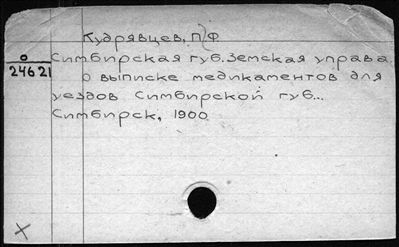 Кудрявцев, П/Ф
О
24621
Симбирская губ. Земская управа.
О выписке медикаментов для
уездов Симбирской губ...
Симбирск, 1900
X